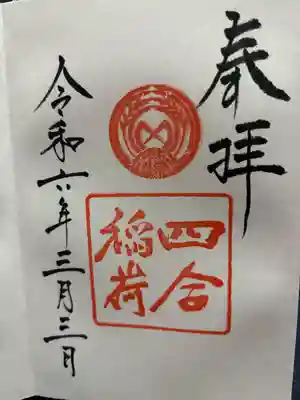 奉拝
四合
稲荷
令和六年三月三日